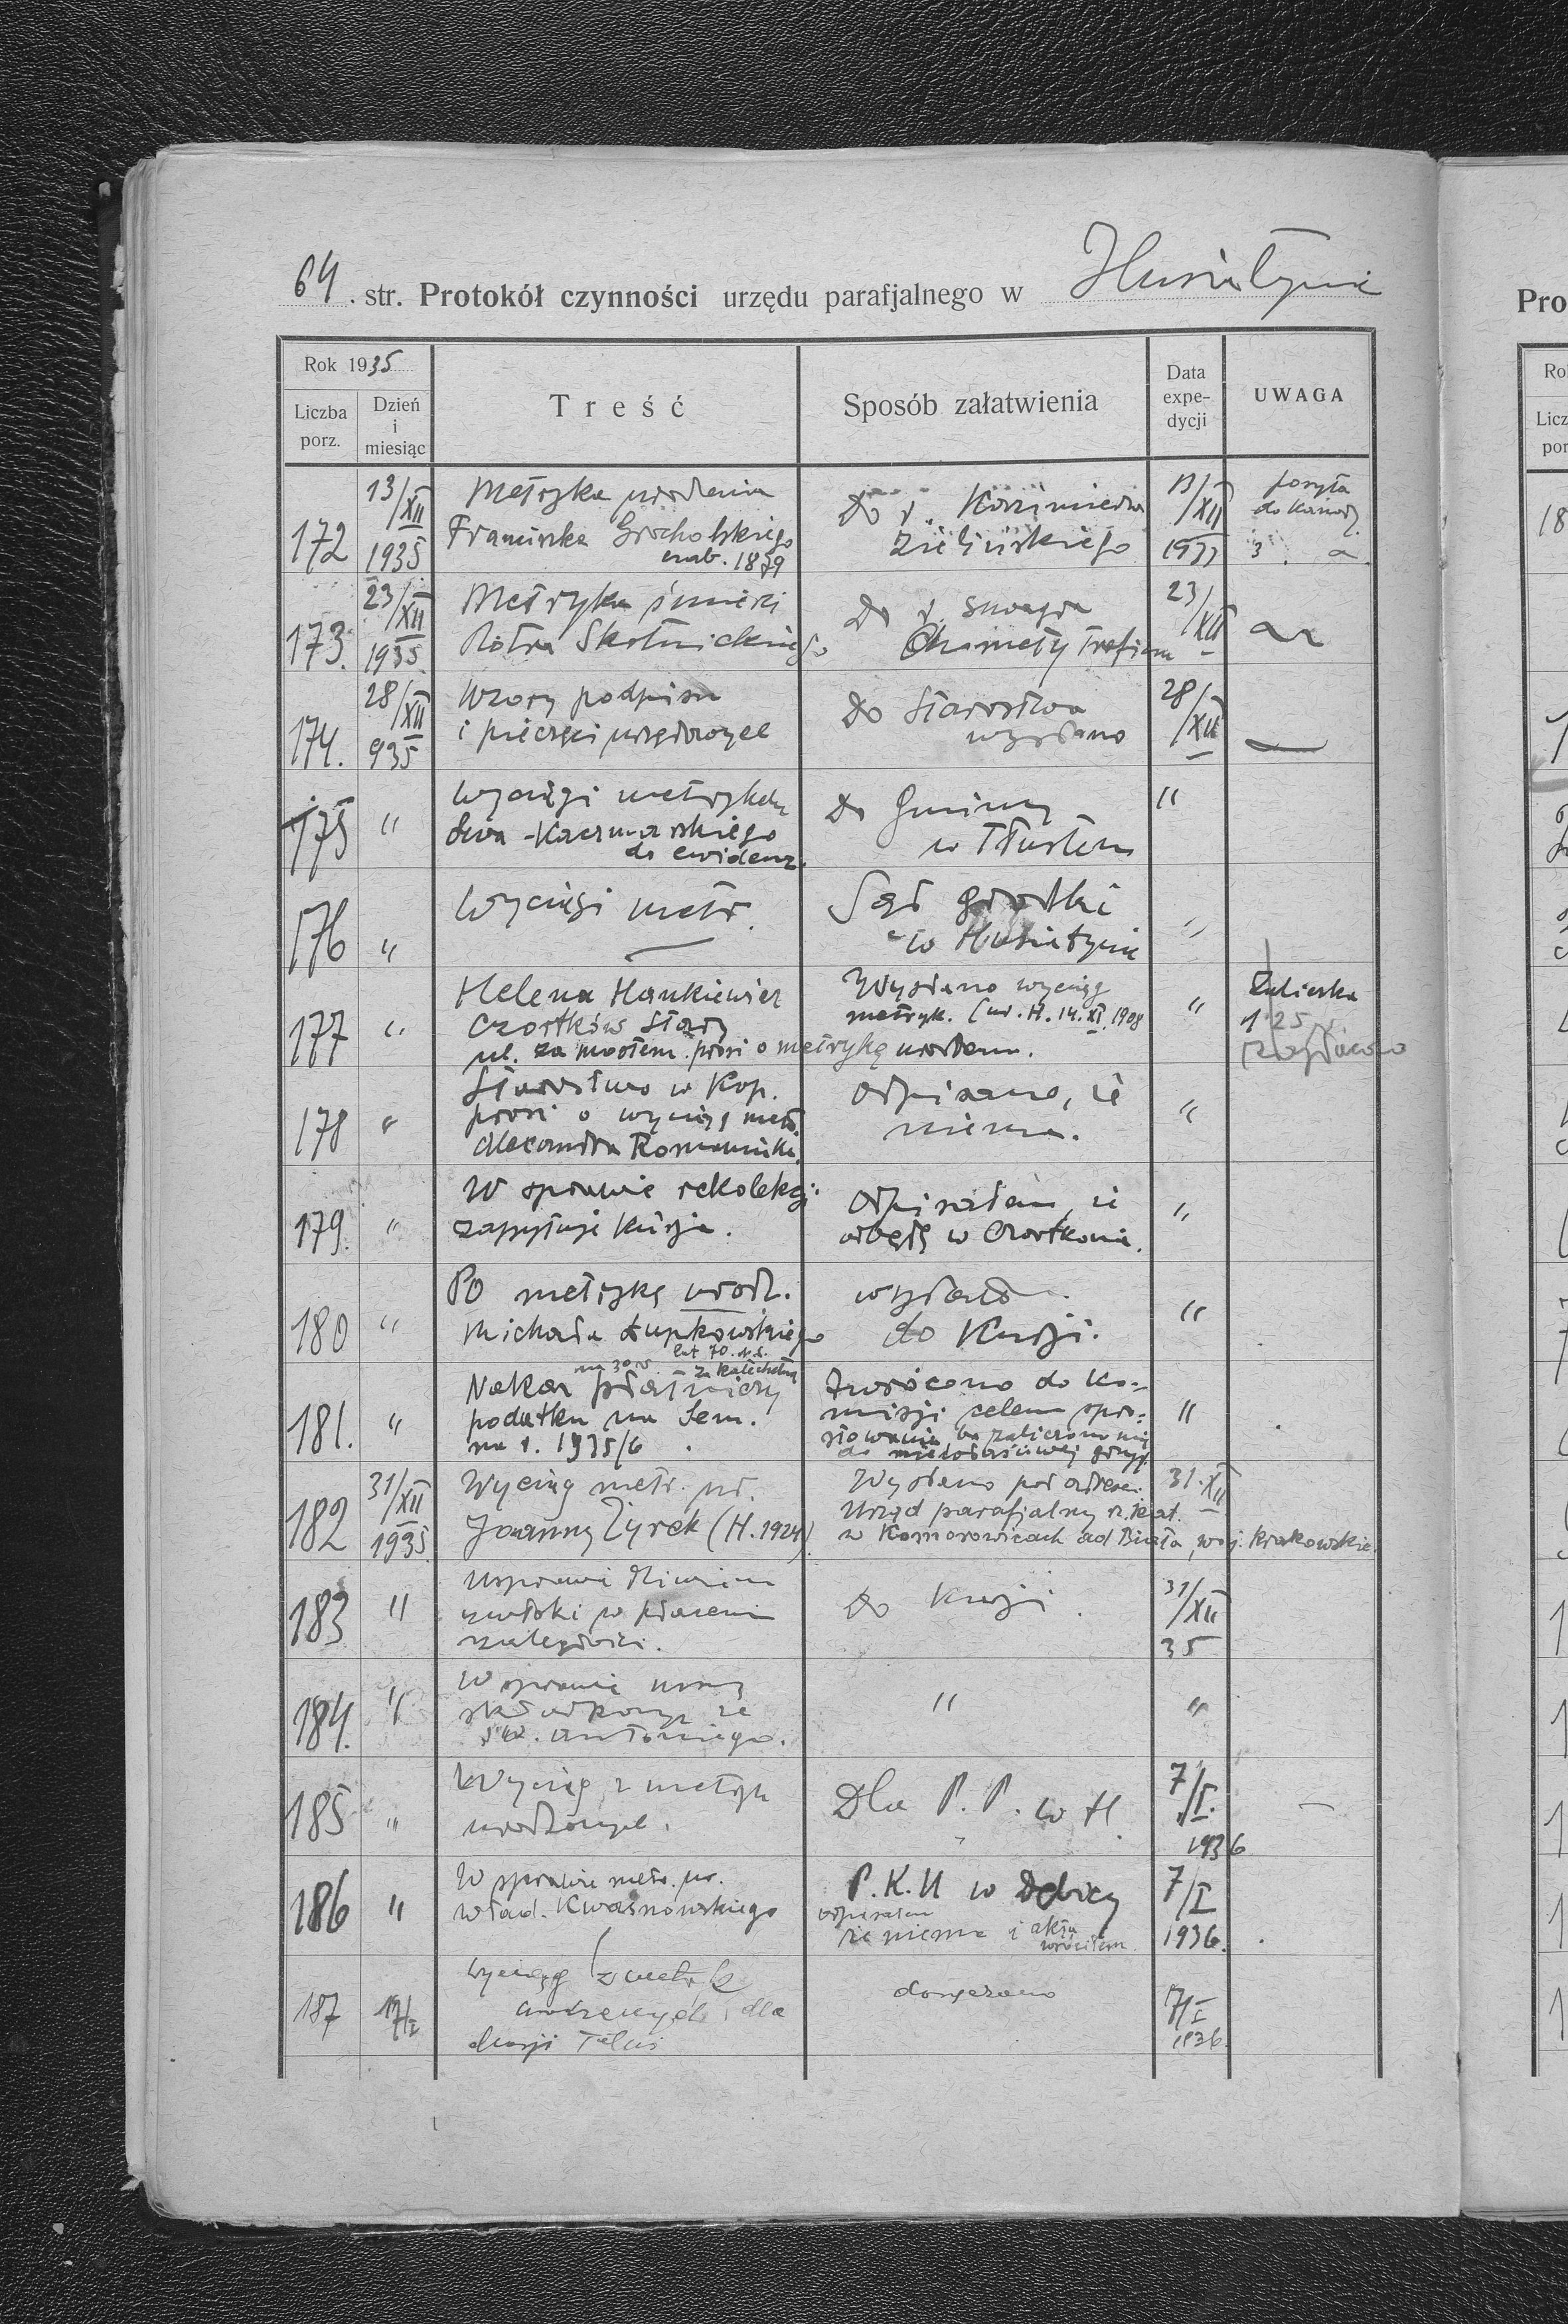 64. str. Protokół czynności urzędu parafjalnego w Husiatynie
Rok 1935
Liczba porz.
Dzień i miesiąc
Treść
Sposób załatwienia
Data expedycji
UWAGA
172
13/XII 1935
Metryka urodzenia
Franciszka Grocholskiego
1879
Do Kazimierza
Zielińskiego
13/XII
do
173.
23/XII 1935
Metryka śmierci
Piotra Skotnickiego
Do
23/XII
174.
28/XII 935
Wzory podpisu
i pieczęci urzędowych
Do Starostwa
wysłano
28/XII
175
"
Wyciągi
Kaczmarskiego
do ewidenz.
Do Gminy
w Tłustem
"
176
"
Wyciągi metr.
Sąd grodzki
w Husiatynie
"
177
"
Helena Hankiewicz
Czortków Stary
ul. za mostem prosi o metrykę urodzen.
Wysłano wyciąg
metryk. (ur. H. 14.XI.1908
"
1 25
178
"
Starostwo w Kop.
prosi o wyciąg metr.
Odpisano, że
niema.
"
179.
"
W sprawie rekolekcji
zapytuje Kurja.
Odpisałem, że
odbędę w Czortkowie.
"
180
"
Po metrykę urodz.
Michała Łupkowskiego
lat 70
wysłano
do Kurji.
"
181.
"
na 30
za katechetę
Nakaz płatniczy
podatku na Sem.
na r. 1935/6.
Zwrócono do Ko=
misji celem spro=
stowania bo zaliczono
do niewłaściwej grupy.
"
182
31/XII 1935
Wyciąg metr. ur.
Joanny Żyrek (H. 1924).
Wysłano pod adresem
Urząd parafjalny r. kat.
w Komorowicach ad Biała, woj. Krakowskie.
31.XII
183
"
zwłoki w płaceniu
zaległości.
do Kurji.
31/XII 35
184.
"
W sprawie
św. Antoniego.
"
"
185
"
Wyciąg z metryk
urodzonych.
Dla P. P. w H.
7/I. 1936
186
"
W sprawie metr. ur.
Wład. Kwaśnowskiego
P.K.U w Dębicy
odpisałem
że niema i akta
zwróciłem.
7/I 1936.
187
Wyciąg z metryk
dla
doręczono
7/I 1936.
Pro